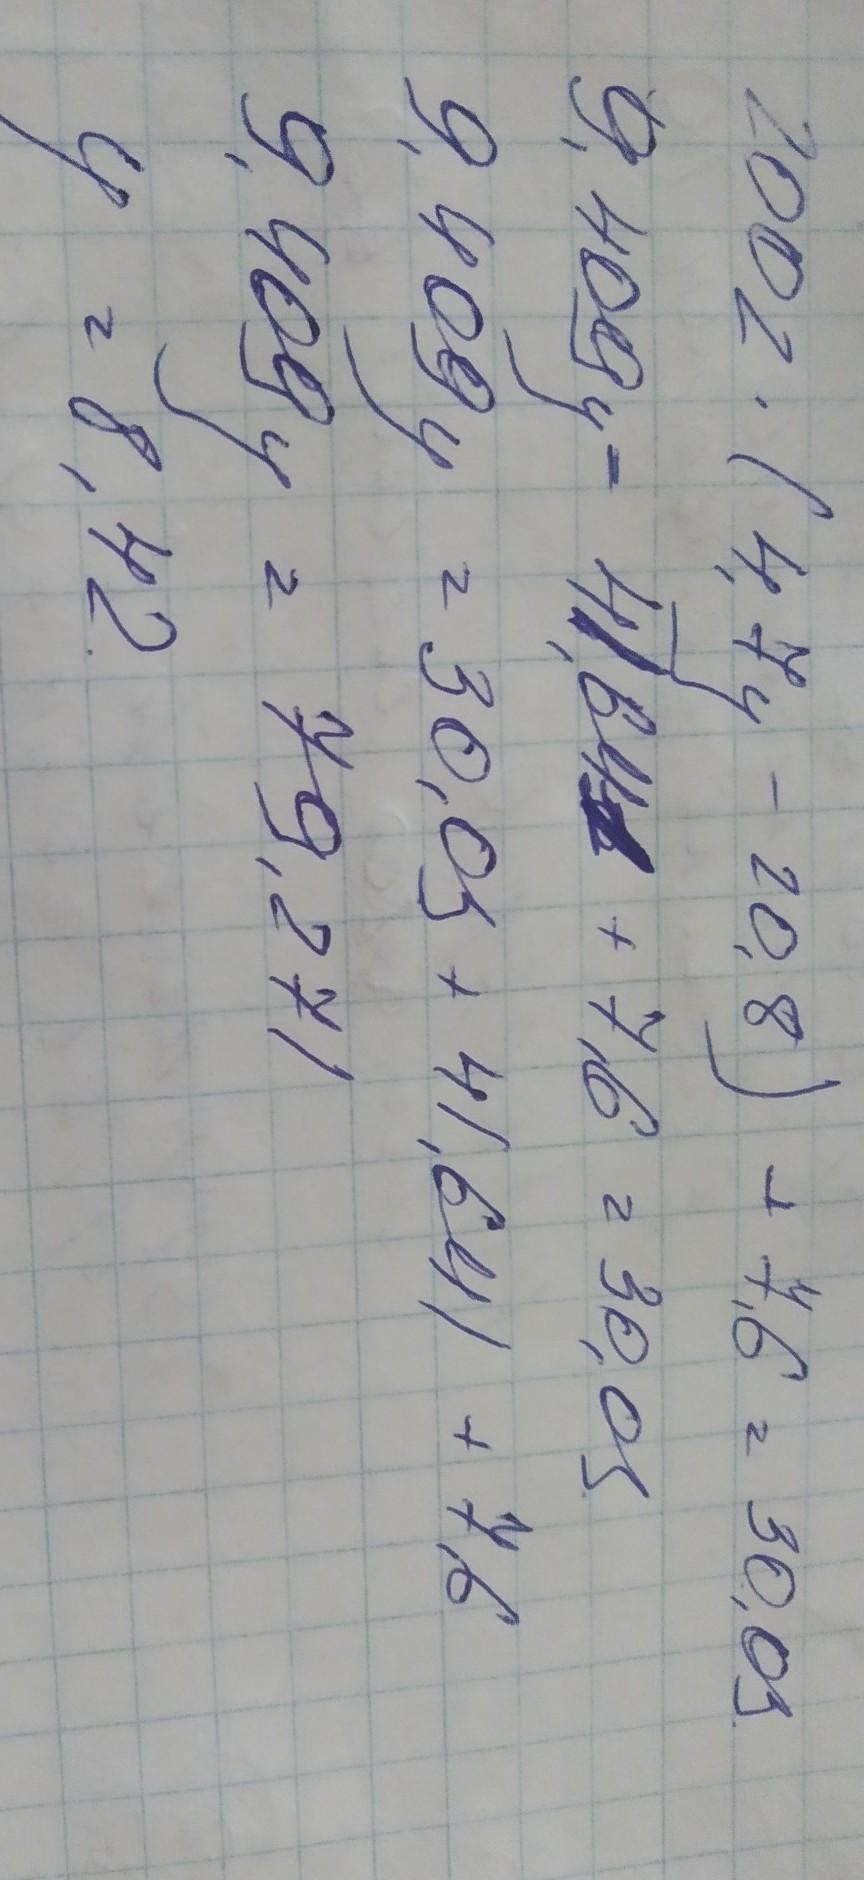 2002 . (4,7y - 20,8) + 7,6 = 30,05
9,409y - 41,641 + 7,6 = 30,05
9,409y = 30,05 + 41,641 + 7,6
9,409y = 79,271
y = 8,42